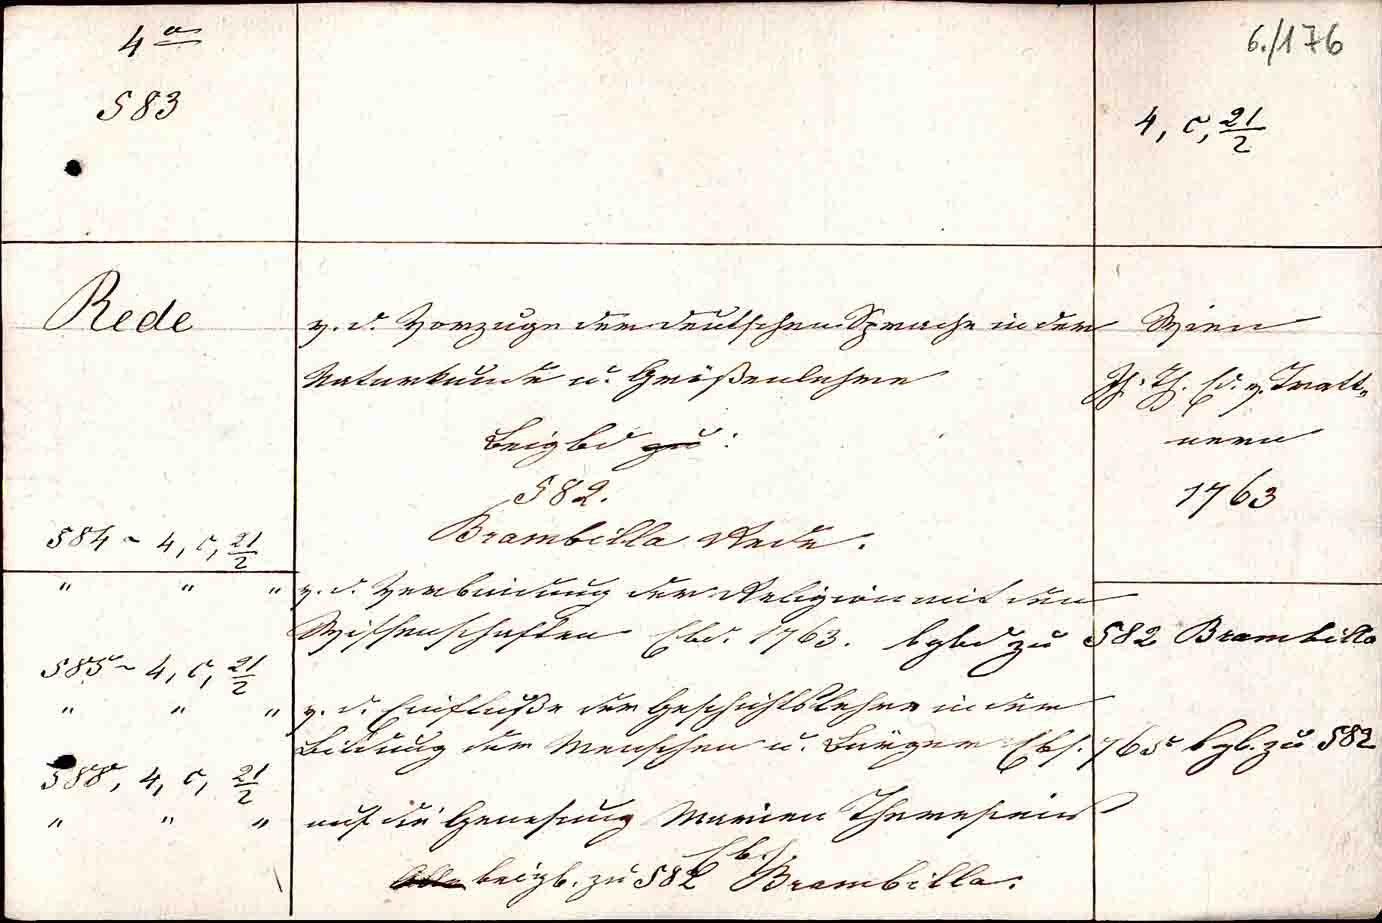 4°
583
6./176
4, c, 21/2
Rede
v. d. Vorzuge der deutschen Sprache in der
Naturkunde u. Größenlehre
beigbd zu:
582.
Brambilla Rede.
Wien
Jh. Th. Ed. v. Tratt-
nern
1763
584 ~ 4, c, 21/2
" " " v. d. Verbindung der Religion mit den
Wissenschaften Ebd. 1763. bgbd zu 582 Brambilla
585 ~ 4, c, 21/2
" " " v. d. Einfluße der Geschichtslehre in der
Bildung der Menschen u. Bürger Ebs. 765 bgb. zu 582
588, 4, c, 21/2
" " " auf die Genesung Marien Theresiens
Eb.
beigb. zu 582 Brambilla.